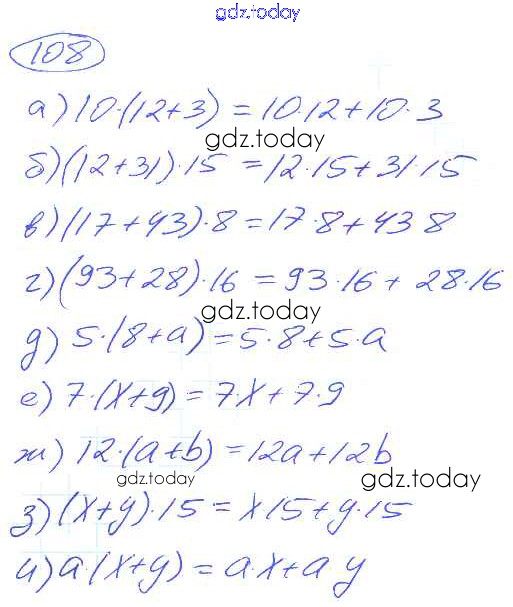 gdz.today
108
а) 10·(12+3) = 10·12+10·3
gdz.today
б) (12+31)·15 = 12·15+31·15
в) (17+43)·8 = 17·8+43 8
г) (93+28)·16 = 93·16+ 28·16
gdz.today
д) 5·(8+a) = 5·8+5·a
е) 7·(x+9) = 7·x+7·9
ж) 12·(a+b) = 12a+12b
gdz.today
gdz.today
з) (x+y)·15 = x15+y·15
и) a·(x+y) = a·x+a y